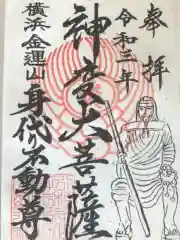 奉拝
令和三年
神変大菩薩
横浜金運山
身代り不動尊